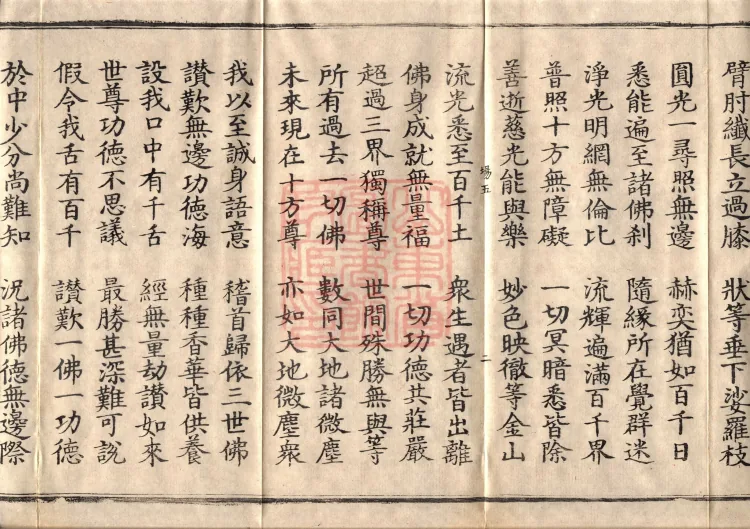 臂肘纖長立過膝　狀等垂下娑羅枝
圓光一尋照無邊　赫奕猶如百千日
悉能遍至諸佛刹　隨緣所在覺群迷
淨光明網無倫比　流輝遍滿百千界
普照十方無障礙　一切冥暗悉皆除
善逝慈光能與樂　妙色映徹等金山
場五　二
流光悉至百千土　衆生遇者皆出離
佛身成就無量福　一切功德共莊嚴
超過三界獨稱尊　世間殊勝無與等
所有過去一切佛　數同大地諸微塵
未來現在十方尊　亦如大地微塵衆
我以至誠身語意　稽首歸依三世佛
讃歎無邊功德海　種種香華皆供養
設我口中有千舌　經無量劫讃如來
世尊功德不思議　最勝甚深難可說
假令我舌有百千　讃歎一佛一功德
於中少分尚難知　況諸佛德無邊際